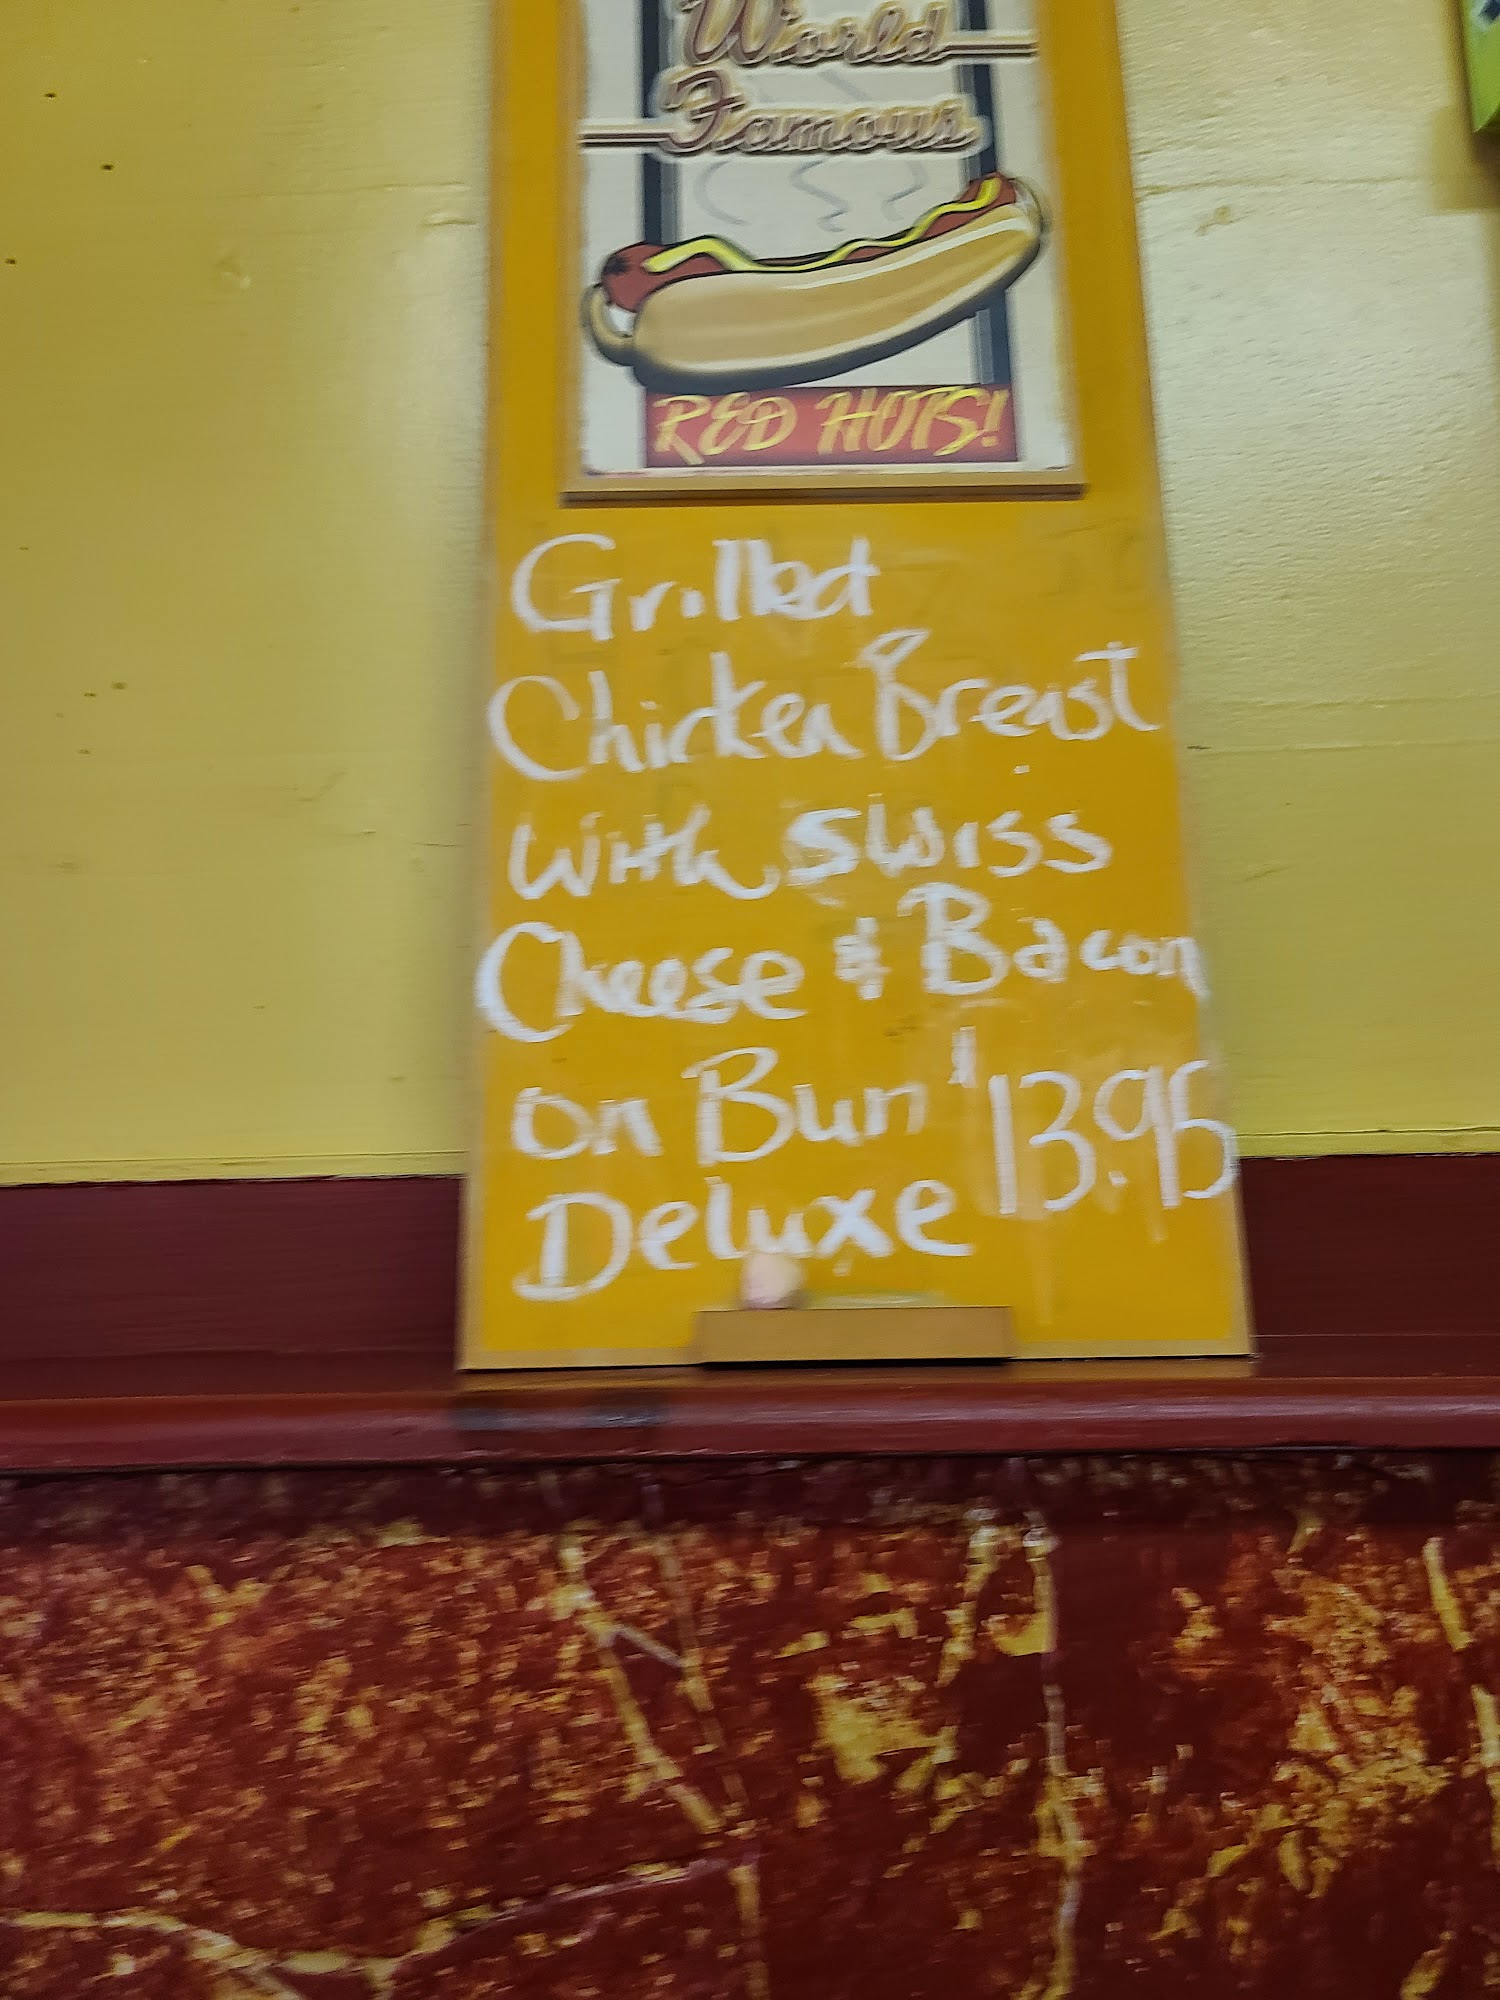 World
Famous
RED HOTS!
Grilled
Chicken Breast
with swiss
Cheese & Bacon
on Bun $13.95
Deluxe